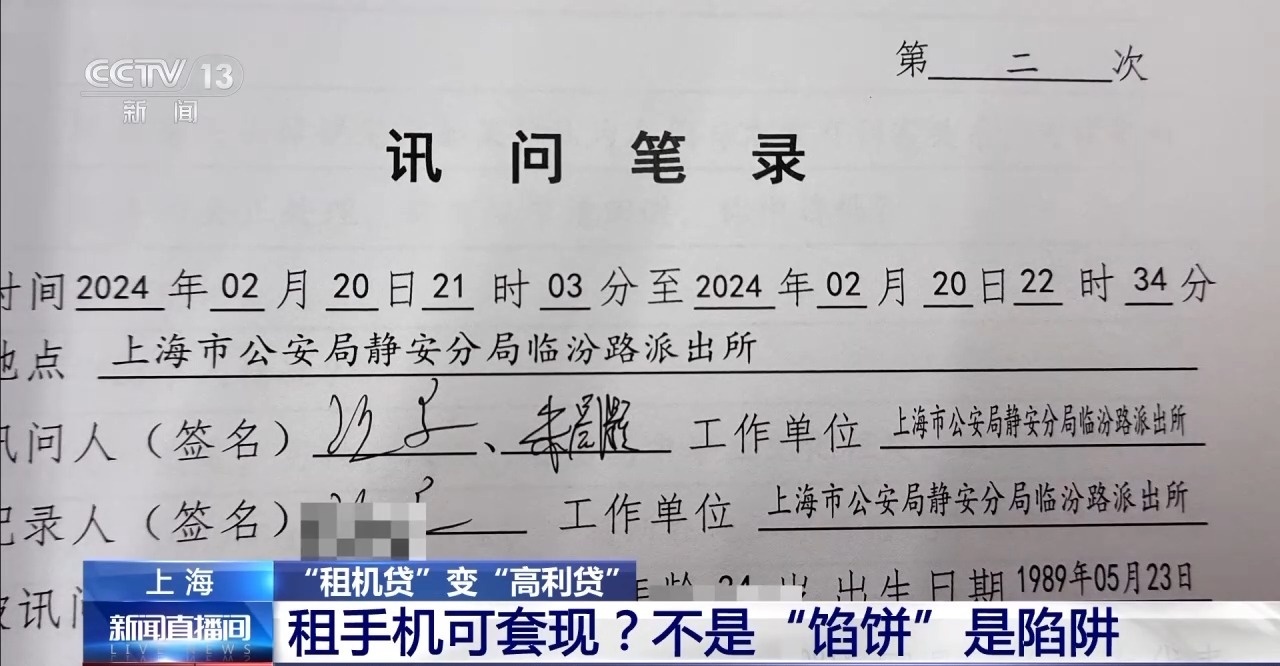 CCTV 13
新闻
第 二 次
讯问笔录
时间2024年02月20日21时03分至2024年02月20日22时34分
地点 上海市公安局静安分局临汾路派出所
讯问人（签名） 、 工作单位 上海市公安局静安分局临汾路派出所
记录人（签名） 工作单位 上海市公安局静安分局临汾路派出所
被讯问 年龄 34 岁 出生日期 1989年05月23日
上海 “租机贷”变“高利贷”
新闻直播间
LIVE NEWS
租手机可套现？不是“馅饼”是陷阱